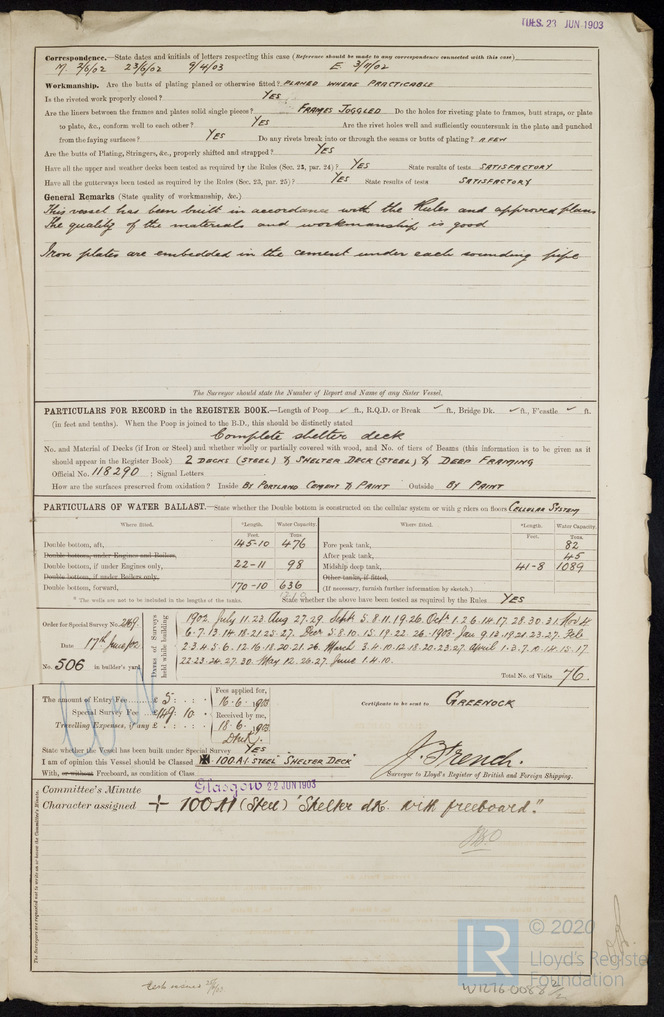 TUES. 23 JUN 1903
Correspondence.—State dates and initials of letters respecting this case (Reference should be made to any correspondence connected with this case)
M. 2/6/02 23/6/02 9/4/03 E. 3/11/02
Workmanship. Are the butts of plating planed or otherwise fitted? PLANED WHERE PRACTICABLE
Is the riveted work properly closed? YES
Are the liners between the frames and plates solid single pieces? FRAMES JOGGLED Do the holes for riveting plate to frames, butt straps, or plate
to plate, &c., conform well to each other? YES Are the rivet holes well and sufficiently countersunk in the plate and punched
from the faying surfaces? YES Do any rivets break into or through the seams or butts of plating? A FEW
Are the butts of Plating, Stringers, &c., properly shifted and strapped? YES
Have all the upper and weather decks been tested as required by the Rules (Sec. 23, par. 24)? YES State results of tests SATISFACTORY
Have all the gutterways been tested as required by the Rules (Sec. 23, par. 25)? YES State results of tests SATISFACTORY
General Remarks (State quality of workmanship, &c.)
This vessel has been built in accordance with the Rules and approved plans
The quality of the materials and workmanship is good
Iron plates are embedded in the cement under each sounding pipe
The Surveyor should state the Number of Report and Name of any Sister Vessel.
PARTICULARS FOR RECORD in the REGISTER BOOK.—Length of Poop ✓ ft., R.Q.D. or Break ✓ ft., Bridge Dk. ✓ ft., F'castle ✓ ft.
(in feet and tenths). When the Poop is joined to the B.D., this should be distinctly stated
Complete shelter deck
No. and Material of Decks (if Iron or Steel) and whether wholly or partially covered with wood, and No. of tiers of Beams (this information is to be given as it
should appear in the Register Book) 2 DECKS (STEEL) & SHELTER DECK (STEEL) & DEEP FRAMING
Official No. 118290 ; Signal Letters
How are the surfaces preserved from oxidation? Inside BY PORTLAND CEMENT & PAINT Outside BY PAINT
PARTICULARS OF WATER BALLAST.—State whether the Double bottom is constructed on the cellular system or with girders on floors CELLULAR SYSTEM
Where fitted. *Length. Water Capacity. Where fitted. *Length. Water Capacity.
Feet. Tons. Feet. Tons.
Double bottom, aft, 145-10 476 Fore peak tank, 82
Double bottom, under Engines and Boilers, After peak tank, 45
Double bottom, if under Engines only, 22-11 98 Midship deep tank, 41-8 1089
Double bottom, if under Boilers only, Other tanks, if fitted,
Double bottom, forward, 170-10 636 (If necessary, furnish further information by sketch.)
* The wells are not to be included in the lengths of the tanks. State whether the above have been tested as required by the Rules YES
Order for Special Survey No. 2169
Date 17th June/02
No. 506 in builder's yard.
Dates of Surveys held while building
1902. July 11.23. Aug 27.29. Sept 5.8.11.19.26. Octr 1.2.6.14.17.28.30.31. Nov 4
6.7.13.14.18.21.25.27. Decr 5.8.10.15.19.22.26. 1903. Jan 9.13.19.21.23.27. Feb
2.3.4.5.6.12.16.18.20.21.26. March 3.4.10.12.18.20.23.27. April 1.3.7.10.14.15.17
22.23.24.27.30. May 12.26.27. June 1.4.10.
Total No. of Visits 76.
The amount of Entry Fee £ 5 : :
Special Survey Fee £149 . 10 .
Travelling Expenses, if any £ : :
Fees applied for,
16.6.1903
Received by me,
18.6.1903
Certificate to be sent to GREENOCK
State whether the Vessel has been built under Special Survey YES
I am of opinion this Vessel should be Classed ✠ 100A1. STEEL "SHELTER DECK"
With, or without Freeboard, as condition of Class
J. French.
Surveyor to Lloyd's Register of British and Foreign Shipping.
Committee's Minute Glasgow 22 JUN 1903
Character assigned + 100A1 (Steel) "Shelter dk. with freeboard."
The Surveyors are requested not to write on or below the Committee's Minute.
© 2020
LR Lloyd's Register
Foundation
W1276-0068 2/2